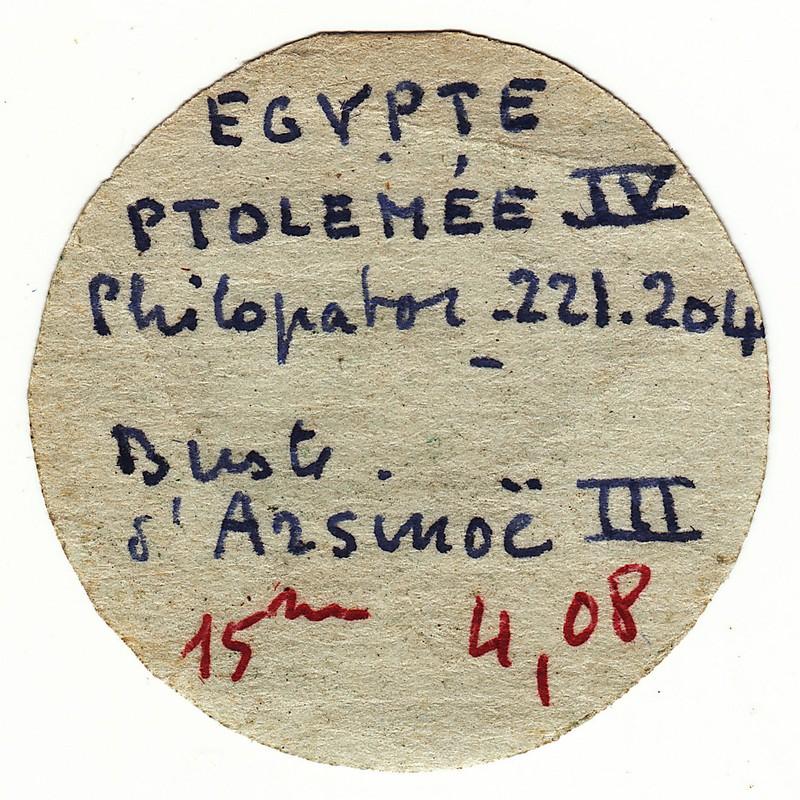 EGYPTE
PTOLEMÉE IV
Philopator - 221.204
Buste
d'Arsinoë III
15mm 4,08